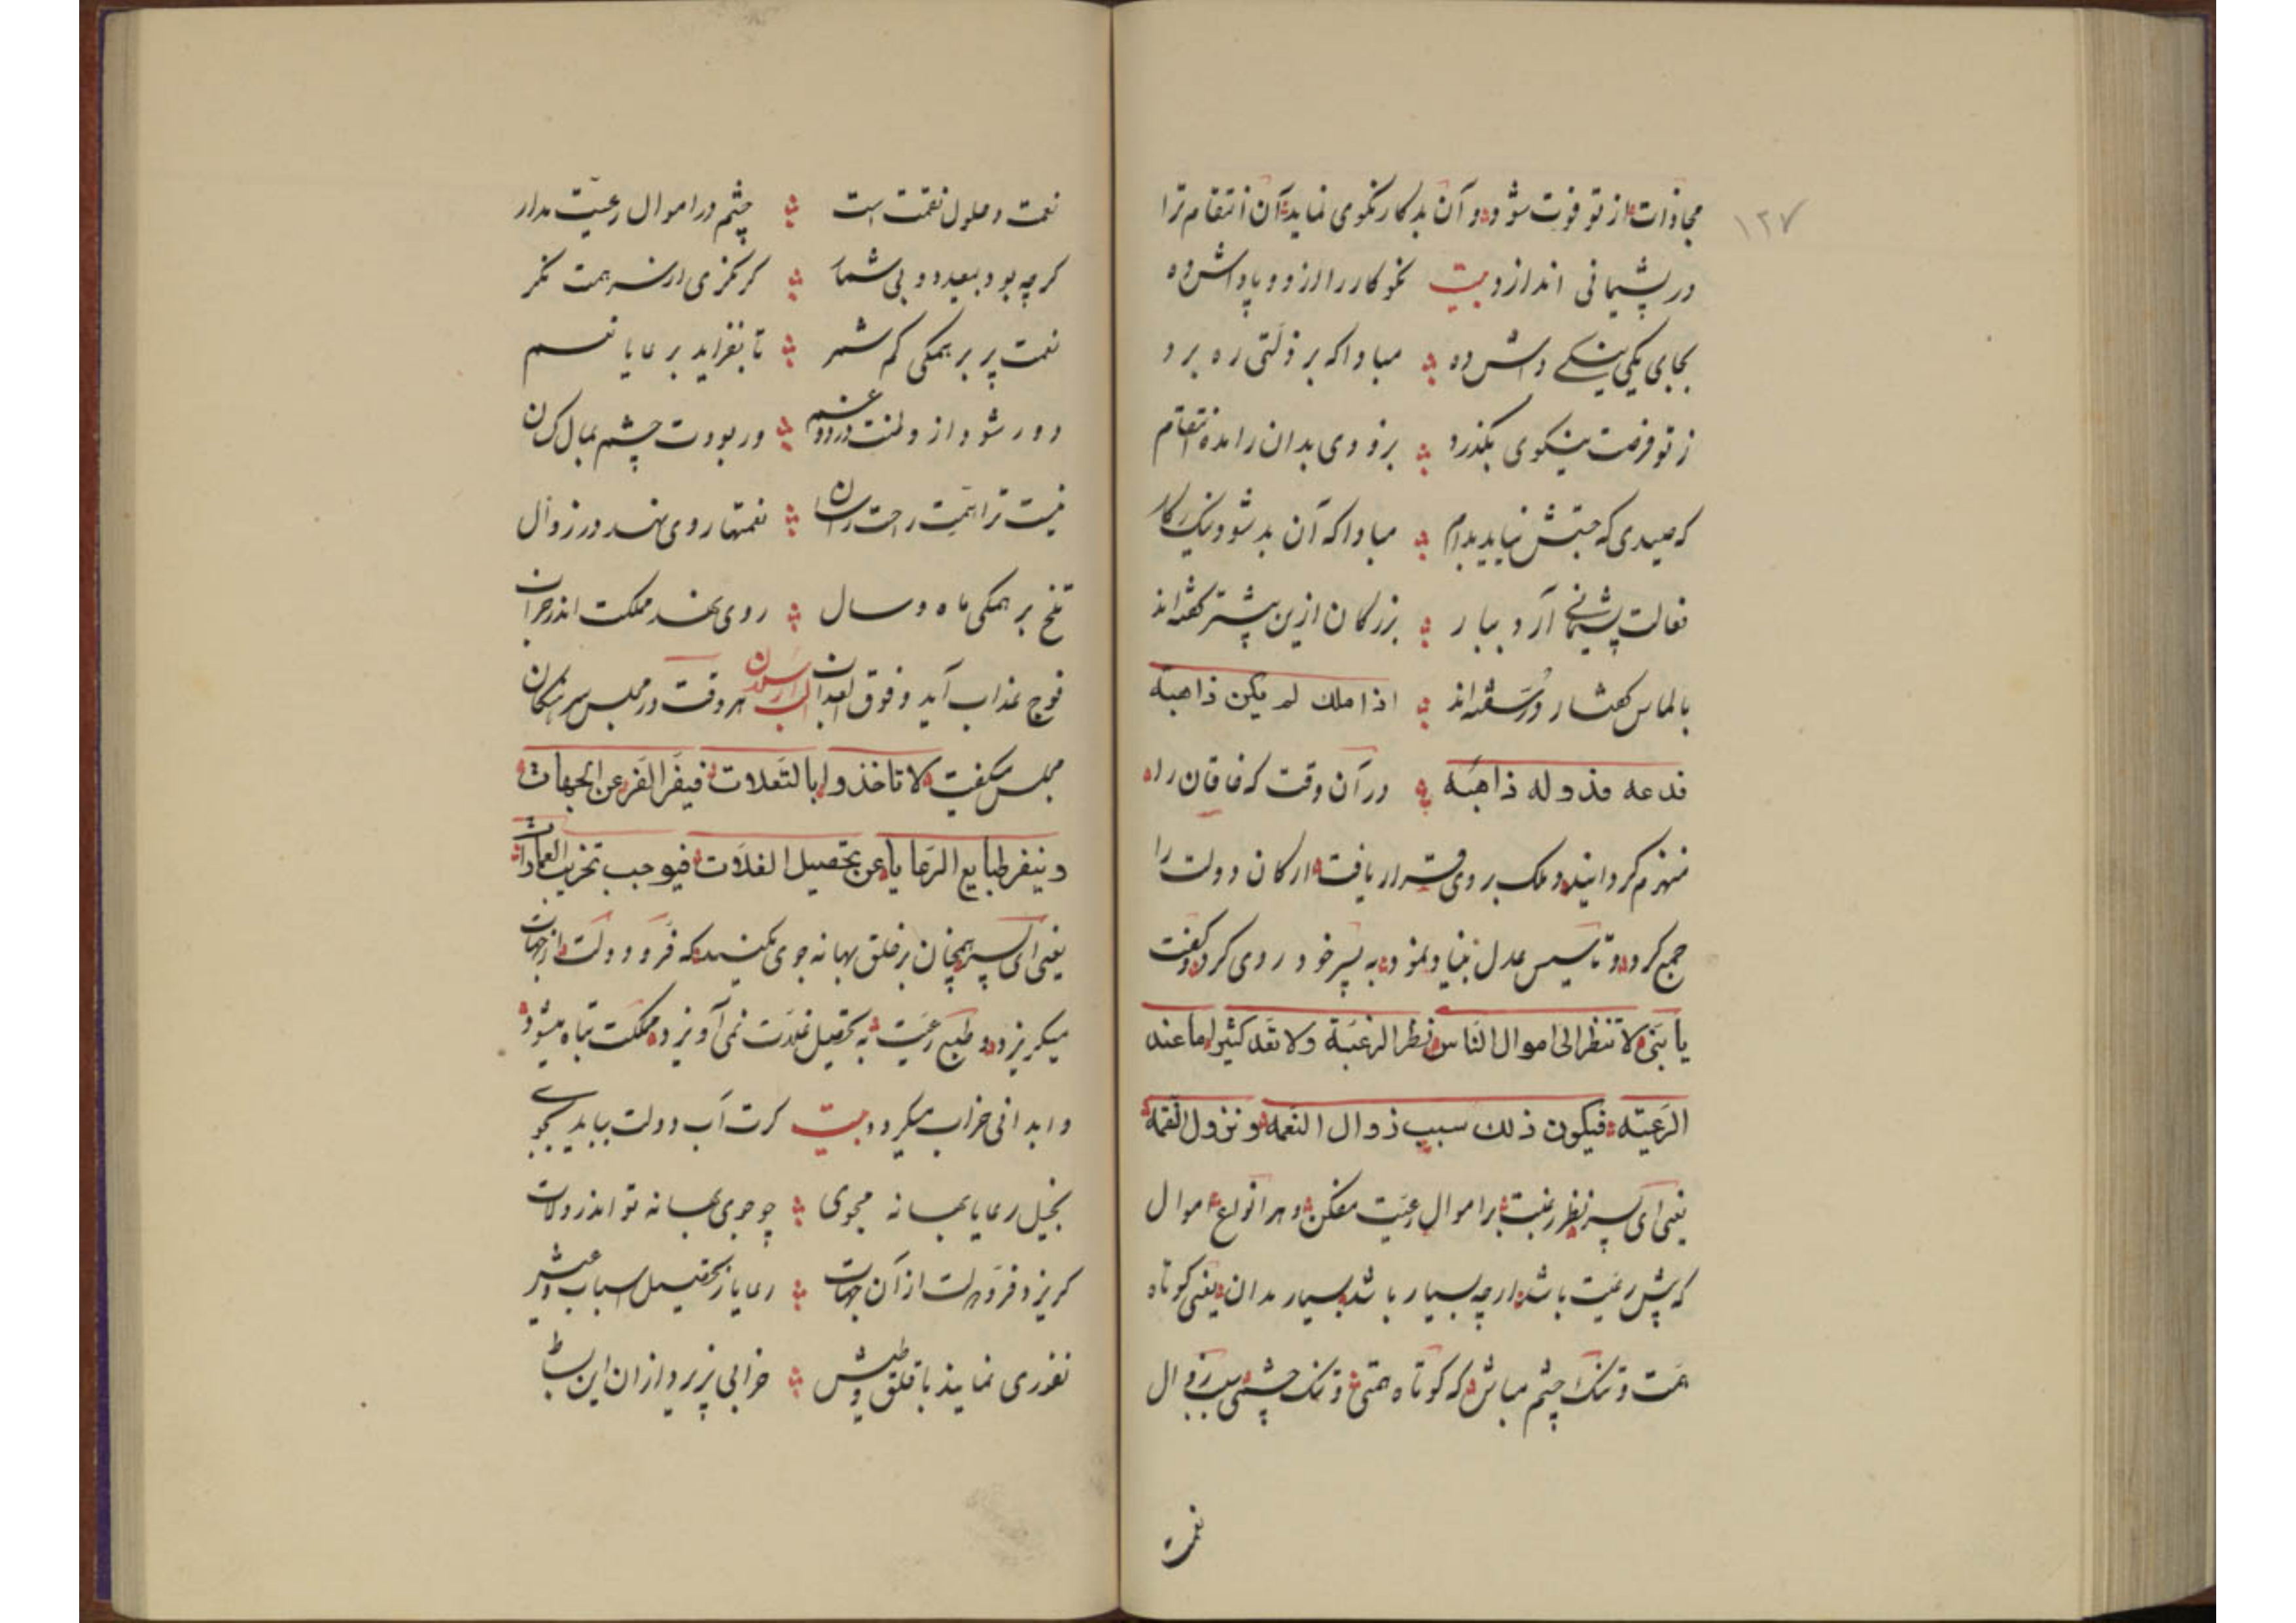 ۱۲۷
مجازات از تو فوت شود و آن بدکار نکوی نماید آن انتقام ترا
در پشیمانی اندازد بیت نکوکار را زود پاداش ده
بجای یکی نیکیی داش ده مبادا که بر ذلتی ره برد
ز تو فرصت نیکوی بگذرد بزودی بدان را مده انتقام
که صیدی که جستش نیاید بدام مبادا که آن بد شود نیک کار
فعالت پشیمانی آرد ببار بزرکان ازین پیشتر گفته‌اند
بالماس گفتار در سفته‌اند اذا ملك لم یکن ذاهبة
فدعه فدوله ذاهبه در آن وقت که خاقان را
منهزم کردانید و ملک بر وی قرار یافت ارکان دولت را
جمع کرد و تاسیس عدل بنیاد نمود به پسر خود روی کرد و گفت
یا بنی لا تنظر الی اموال الناس نظر الرغبة ولا تعد کثیرا ما عند
الرعیته فیکون ذلك سبب ذوال النعمه و نزول النقمه
یعنی ای پسر نظر رغبت بر اموال رعیت مفکن و هر انواع اموال
که پیش رعیت باشد ارچه بسیار باشد بسیار مدان یعنی کوتاه
همت و تنک چشم مباش که کوتاه همتی و تنک چشمی سبب زوال
نعمت
نعمت و حلول نقمت است چشم در اموال رعیت مدار
کرچه بود بیعدد و بی شمار کر نکری از سر همت نکر
نعمت پر بر همکی کم شمر تا بفزاید بر عایا نعم
دور شود از دلت درد و غم ور بودت چشم بمال کسان
نیست ترا همت راحت رسان نعمتها روی نهد در زوال
تلخ بر همکی ماه و سال روی نهد مملکت اندر خراب
فوج عذاب آید و فوق العذاب هر وقت در مجلس سرهنکان
مجلس میکفت لا تاخذوا بالتعلات فیفر الفر عن الجهات
و ینفر طبایع الرعایا عن تحصیل الغلات فیوجب تخریب العمارات
یعنی ای پسر همچنان بر خلق بهانه جوی مکنید که فر و دولت از جهات
میکریزد و طبع رعیت به تحصیل غلات نمی آویزد و مملکت تباه میشود
و ابدانی خراب میکردد بیت کرت آب دولت بباید بجوی
بخیل رعایا بهانه مجوی چو جوی بهانه تو اندر ولات
کریزد فر دولت از آن جهات رعایا ز تحصیل اسباب عیش
نفوری نمایند با قلق و طیش خرابی پزیرد از ان این بساط